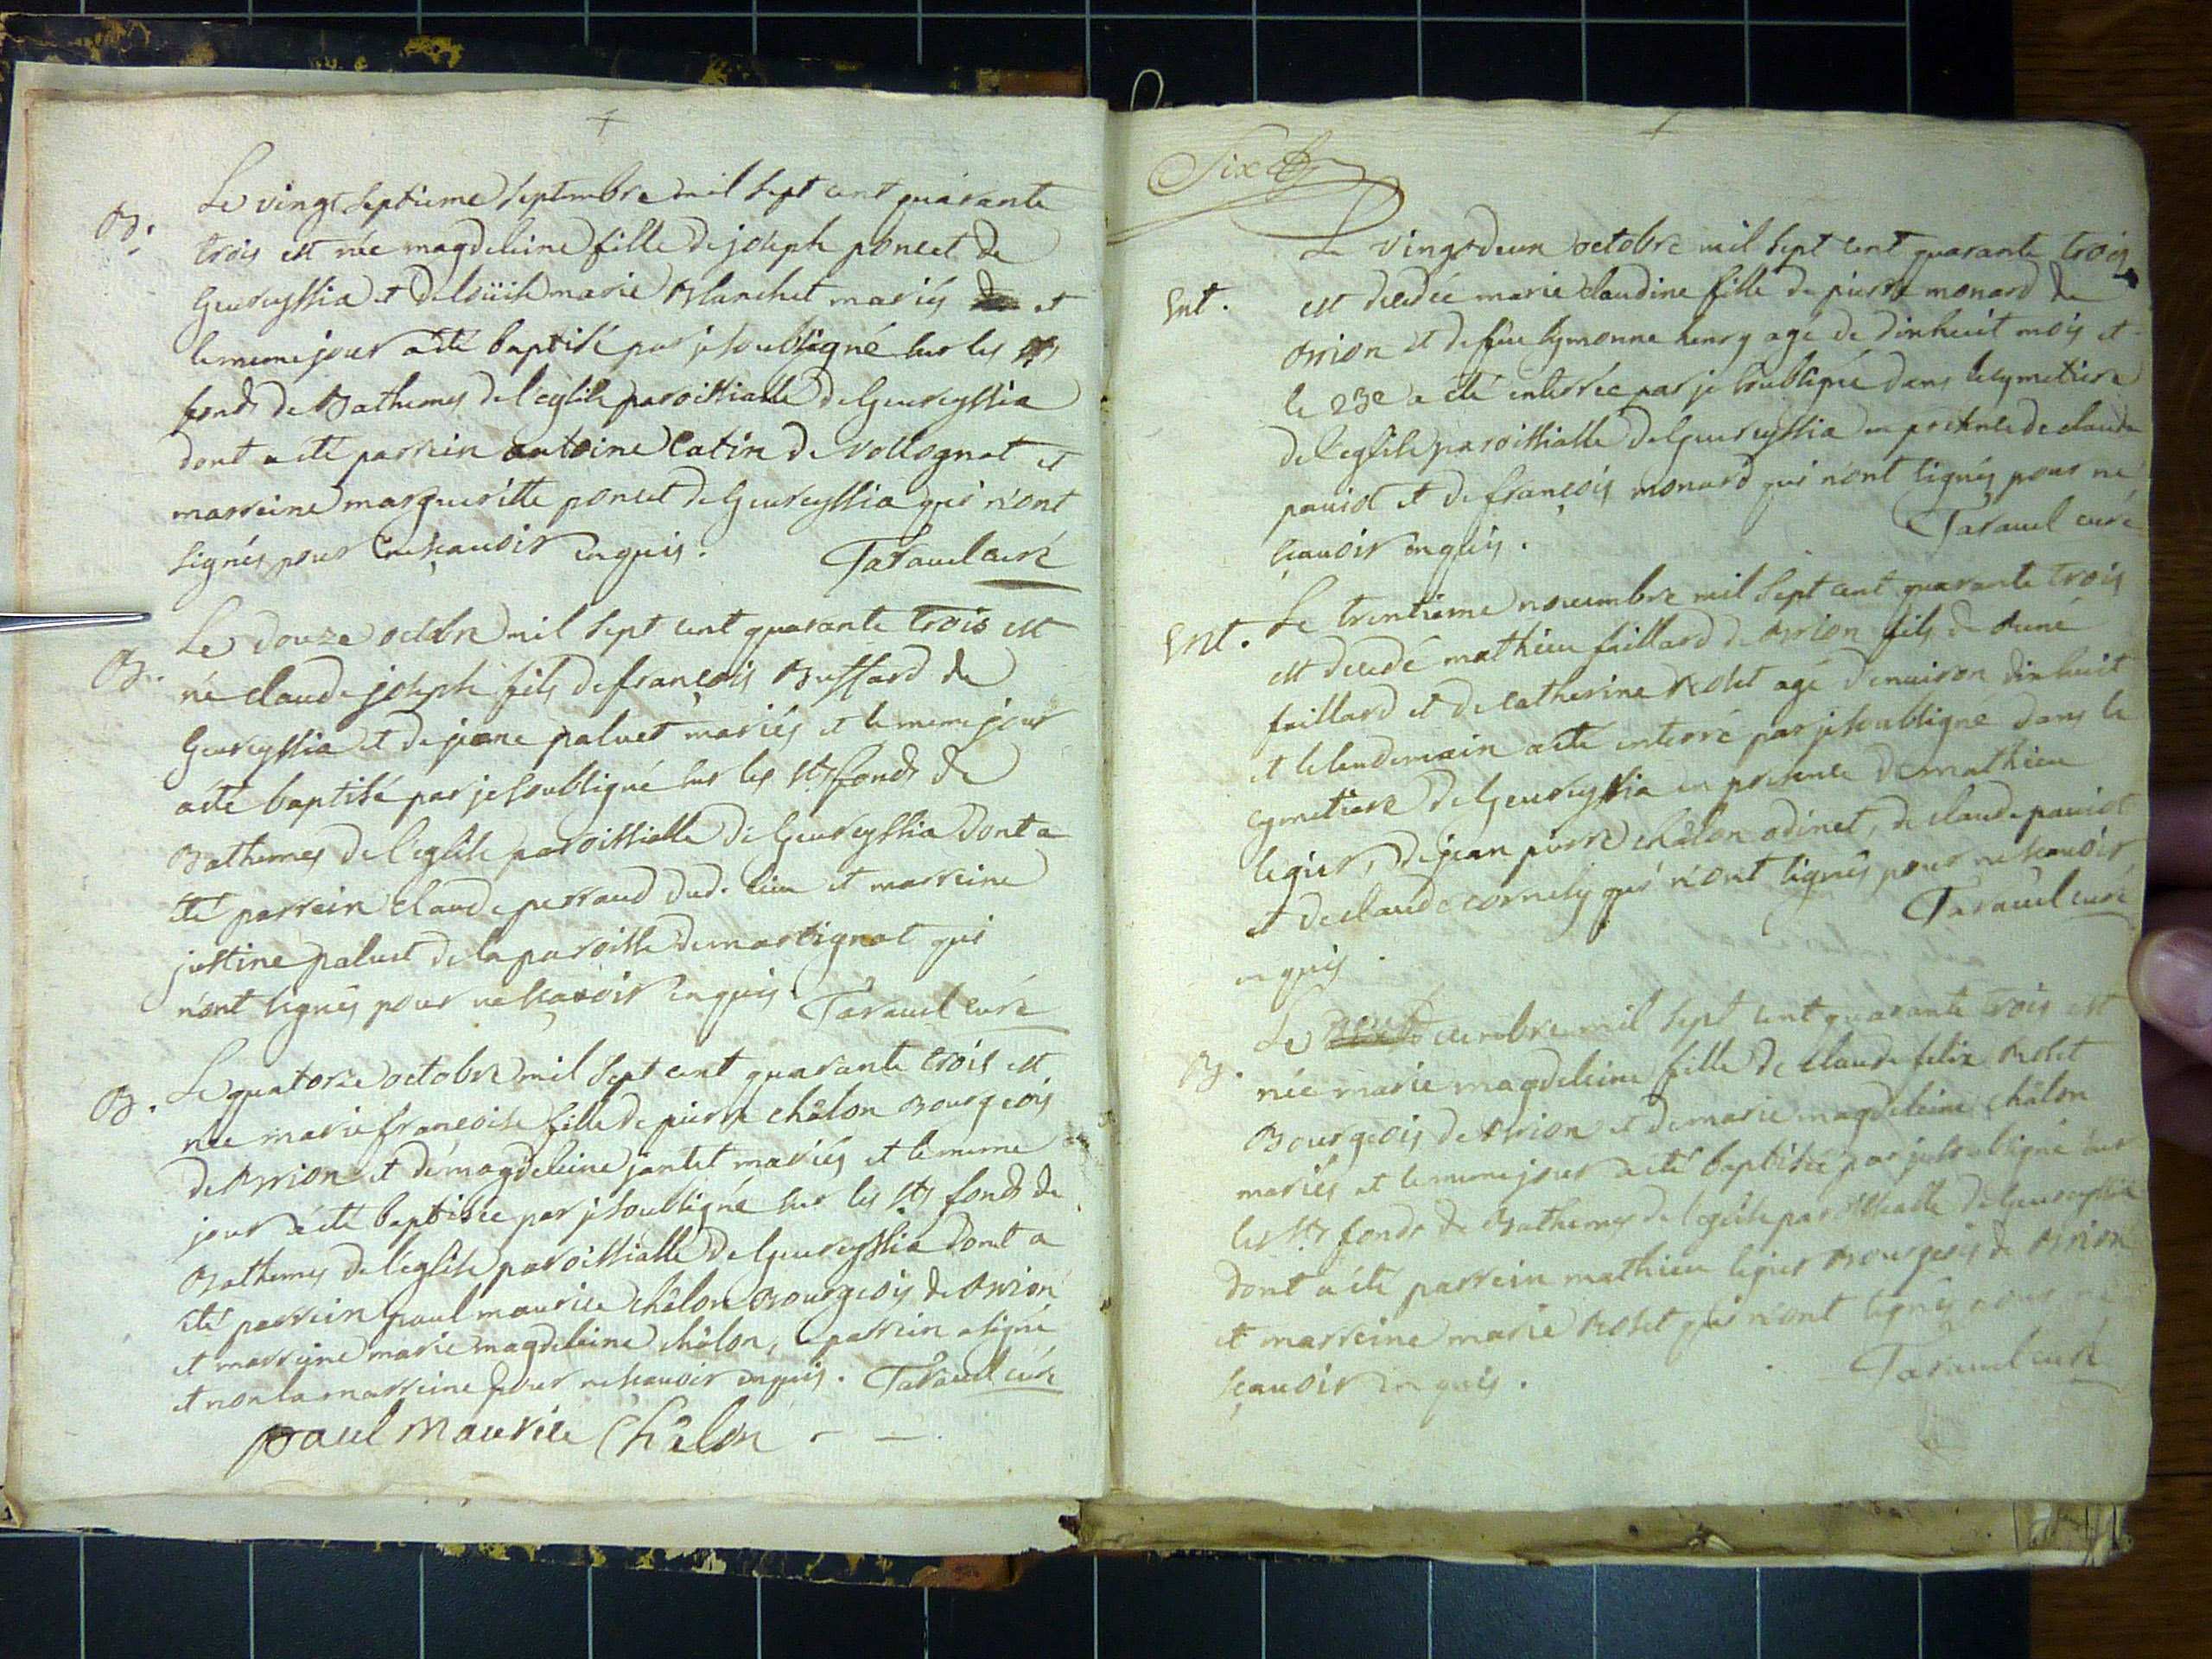 B.
Le vingt septieme septembre mil sept cent quarante
trois est née magdeleine fille de joseph poncet de
Geureyssia et de loüise marie Blanchet mariés et
le meme jour a été baptisé par je soussigné sur les sts
fonds de Bathemes de l'eglise paroissialle de Geureyssia
dont a été parrein antoine Catin de Vollognat et
marreine margueritte poncet de Geureyssia qui n'ont
signés pour ne sçauoir enquis. Tarauel curé
B.
Le douze octobre mil sept cent quarante trois est
né claude joseph fils de françois Buffard de
Geureyssia et de jeane paluet mariés et le meme jour
a été baptisé par je soussigné sur les sts fonds de
Bathemes de l'eglise paroissialle de Geureyssia dont a
été parrein claude perraud dud. lieu et marreine
justine paluet de la paroisse de martignat qui
n'ont signés pour ne sçavoir enquis. Tarauel curé
B.
Le quatorze octobre mil sept cent quarante trois est
née marie françoise fille de pierre châlon Bourgeois
de Brion et de magdeleine jantet mariés et le meme
jour a été baptisée par je soussigné sur les sts fonds de
Bathemes de l'eglise paroissialle de Geureyssia dont a
été parrein paul maurice châlon Bourgeois de Brion
et marreine marie magdeleine châlon, le parrein a signé
et non la marreine pour ne sçauoir enquis. Tarauel curé
paul Maurice Châlon
Six
Le vingt deux octobre mil sept cent quarante trois
Ent.
est decedée marie claudine fille de pierre monard de
Brion et de füe symonne henry age de dixhuit mois et
le 23e a été enterrée par je soussigné dans le cymetiere
de l'eglise paroissialle de Geureyssia en presence de claude
pauiot et de françois monard qui n'ont signés pour ne
sçauoir enquis. Tarauel curé
Ent.
Le trentieme nouembre mil sept cent quarante trois
est decedé mathieu faillard de Brion fils de René
faillard et de catherine Rolet agé d'enuiron dixhuit
et le lendemain a été enterré par je soussigné dans le
cymetiere de Geureyssia en presence de mathieu
legier, de jean pierre châlon odinet, de claude pauiot
et de claude cornely qui n'ont signés pour ne sçauoir
enquis. Tarauel curé
B.
Le decembre mil sept cent quarante trois est
née marie magdeleine fille de claude felix Rolet
Bourgeois de Brion et de marie magdeleine châlon
mariés et le meme jour a été baptisée par je soussigné sur
les sts fonds de Bathemes de l'eglise paroissialle de Geureyssia
dont a été parrein mathieu legier Bourgeois de Brion
et marreine marie Rolet qui n'ont signés pour ne
sçauoir enquis. Tarauel curé